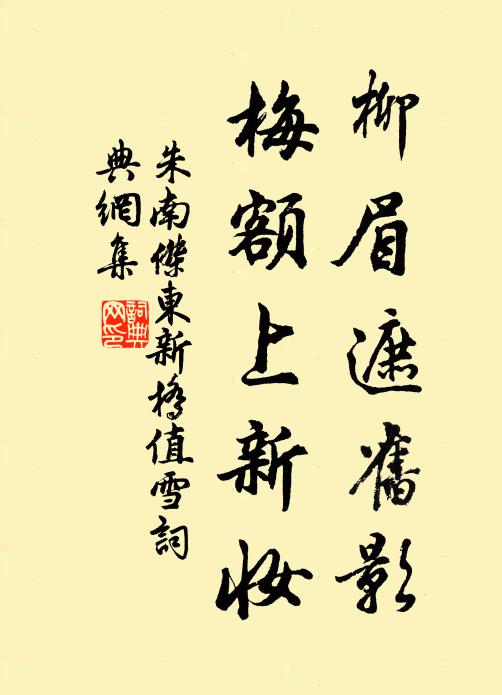 柳眉遮舊影
梅額上新妝
朱南傑東新橋值雪詞
典網集
詞典
网印